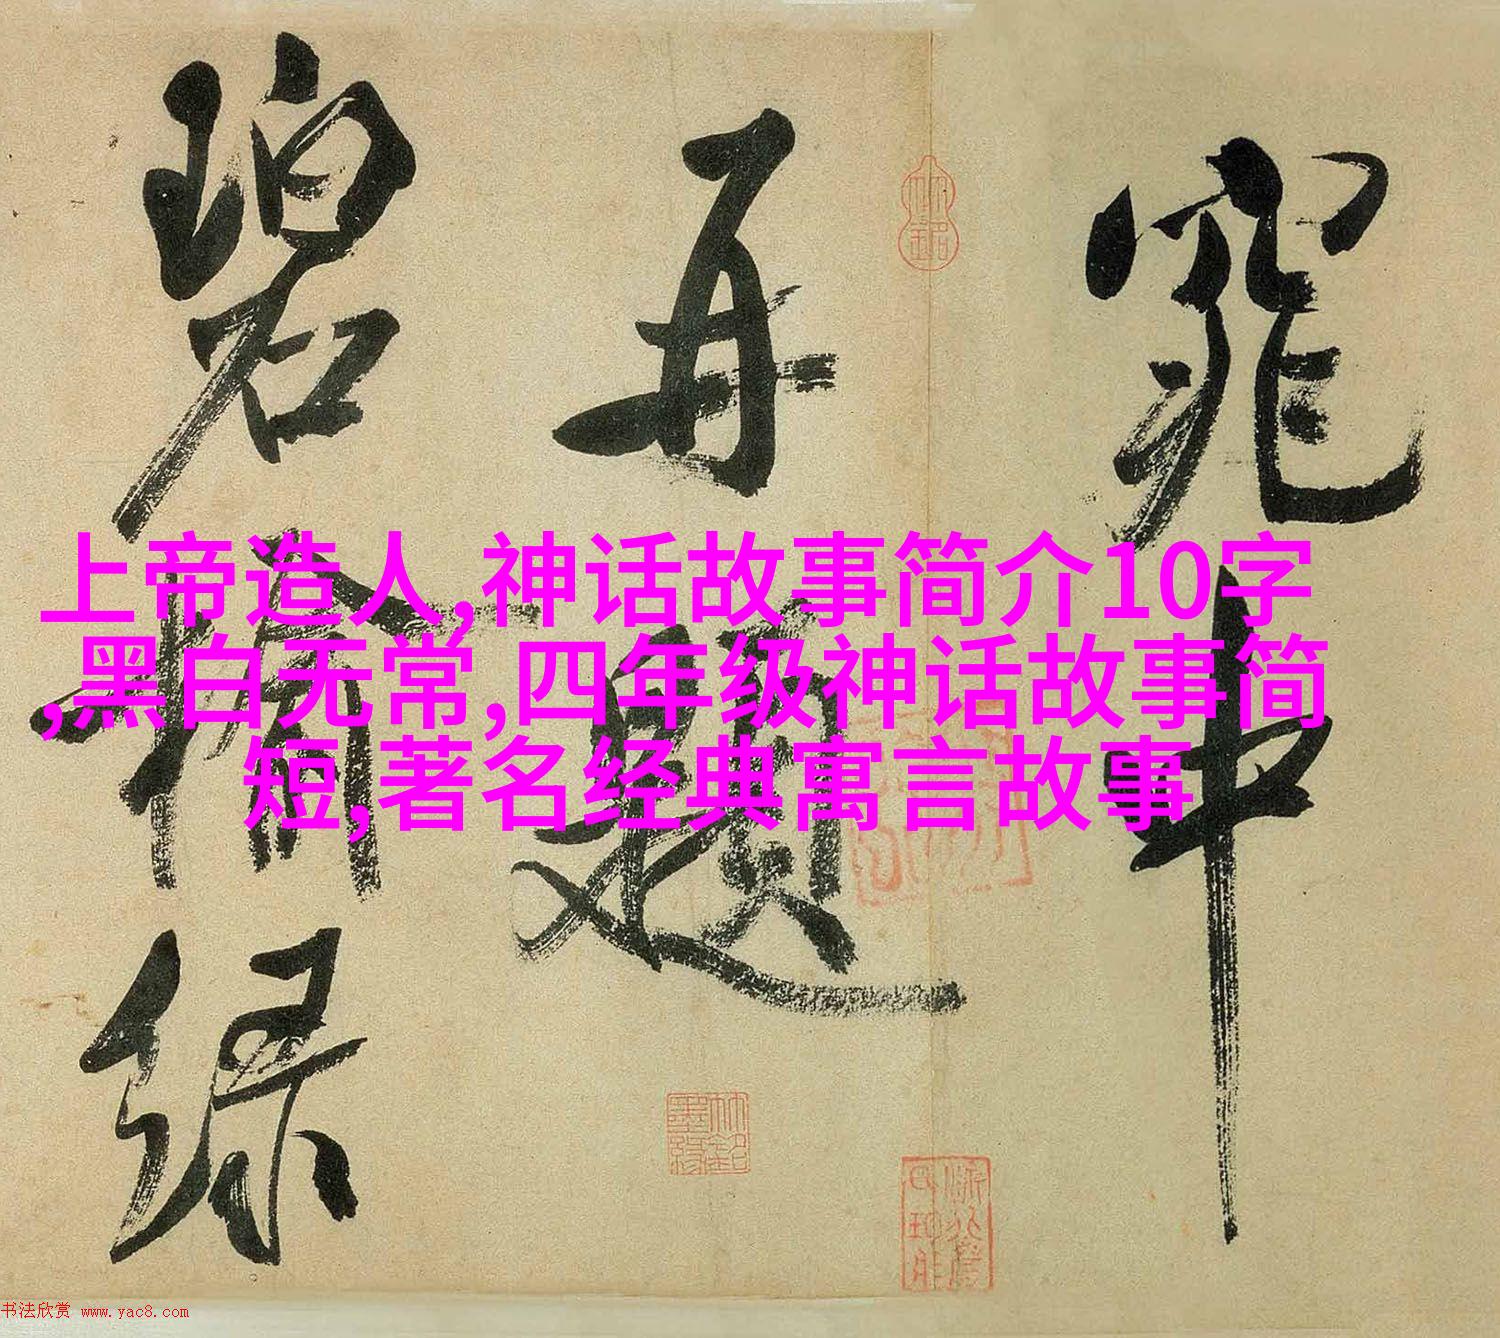 窕中
再题
碧搖绿
上帝造人,神话故事简介10字
,黑白无常,四年级神话故事简
短,著名经典寓言故事
书法欣赏 www.yac8.com